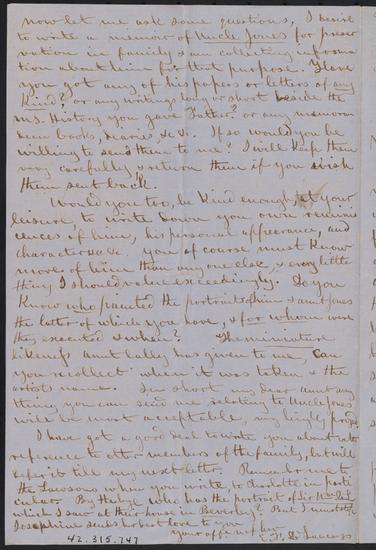 now let me ask some questions, I desire
to write a memoir of Uncle Jones for preser
vation in family & am collecting informa
tion about him for that purpose. Have
you got any of his papers or letters of any
kind? or any writings long or short beside the
ms. History you gave Father? or any memoran
dum books, diaries, &c &c. If so would you be
willing to send them to me? I will keep them
very carefully, return them if you wish
them sent back.
Would you too, be kind enough, at your
leisure to write down you own reminis
cences of him, his personal appearance, and
character &c &c. you of course must know
more of him than any one else, & every little
thing I should value exceedingly. Do you
know who painted the portraits of him & aunt Jones
the latter of which you have, & for whom were
they executed & when? The miniature
likeness aunt Lally has given to me, Can
you recollect when it was taken & the
artists name. In short my dear aunt any
thing, you can send me relating to Uncle Jones
will be most acceptable, & highly prized
I have got a good deal to write you about
reference to other members of the family, but will
defer it till my next letter. Remember me to
the Lawsons when you write, to Charlotte in parti
cular. By the bye who has the portrait of Sir
which I saw at their house in Beverley? But I must
Josephine sends her best love to you
your affn.
42.315.747